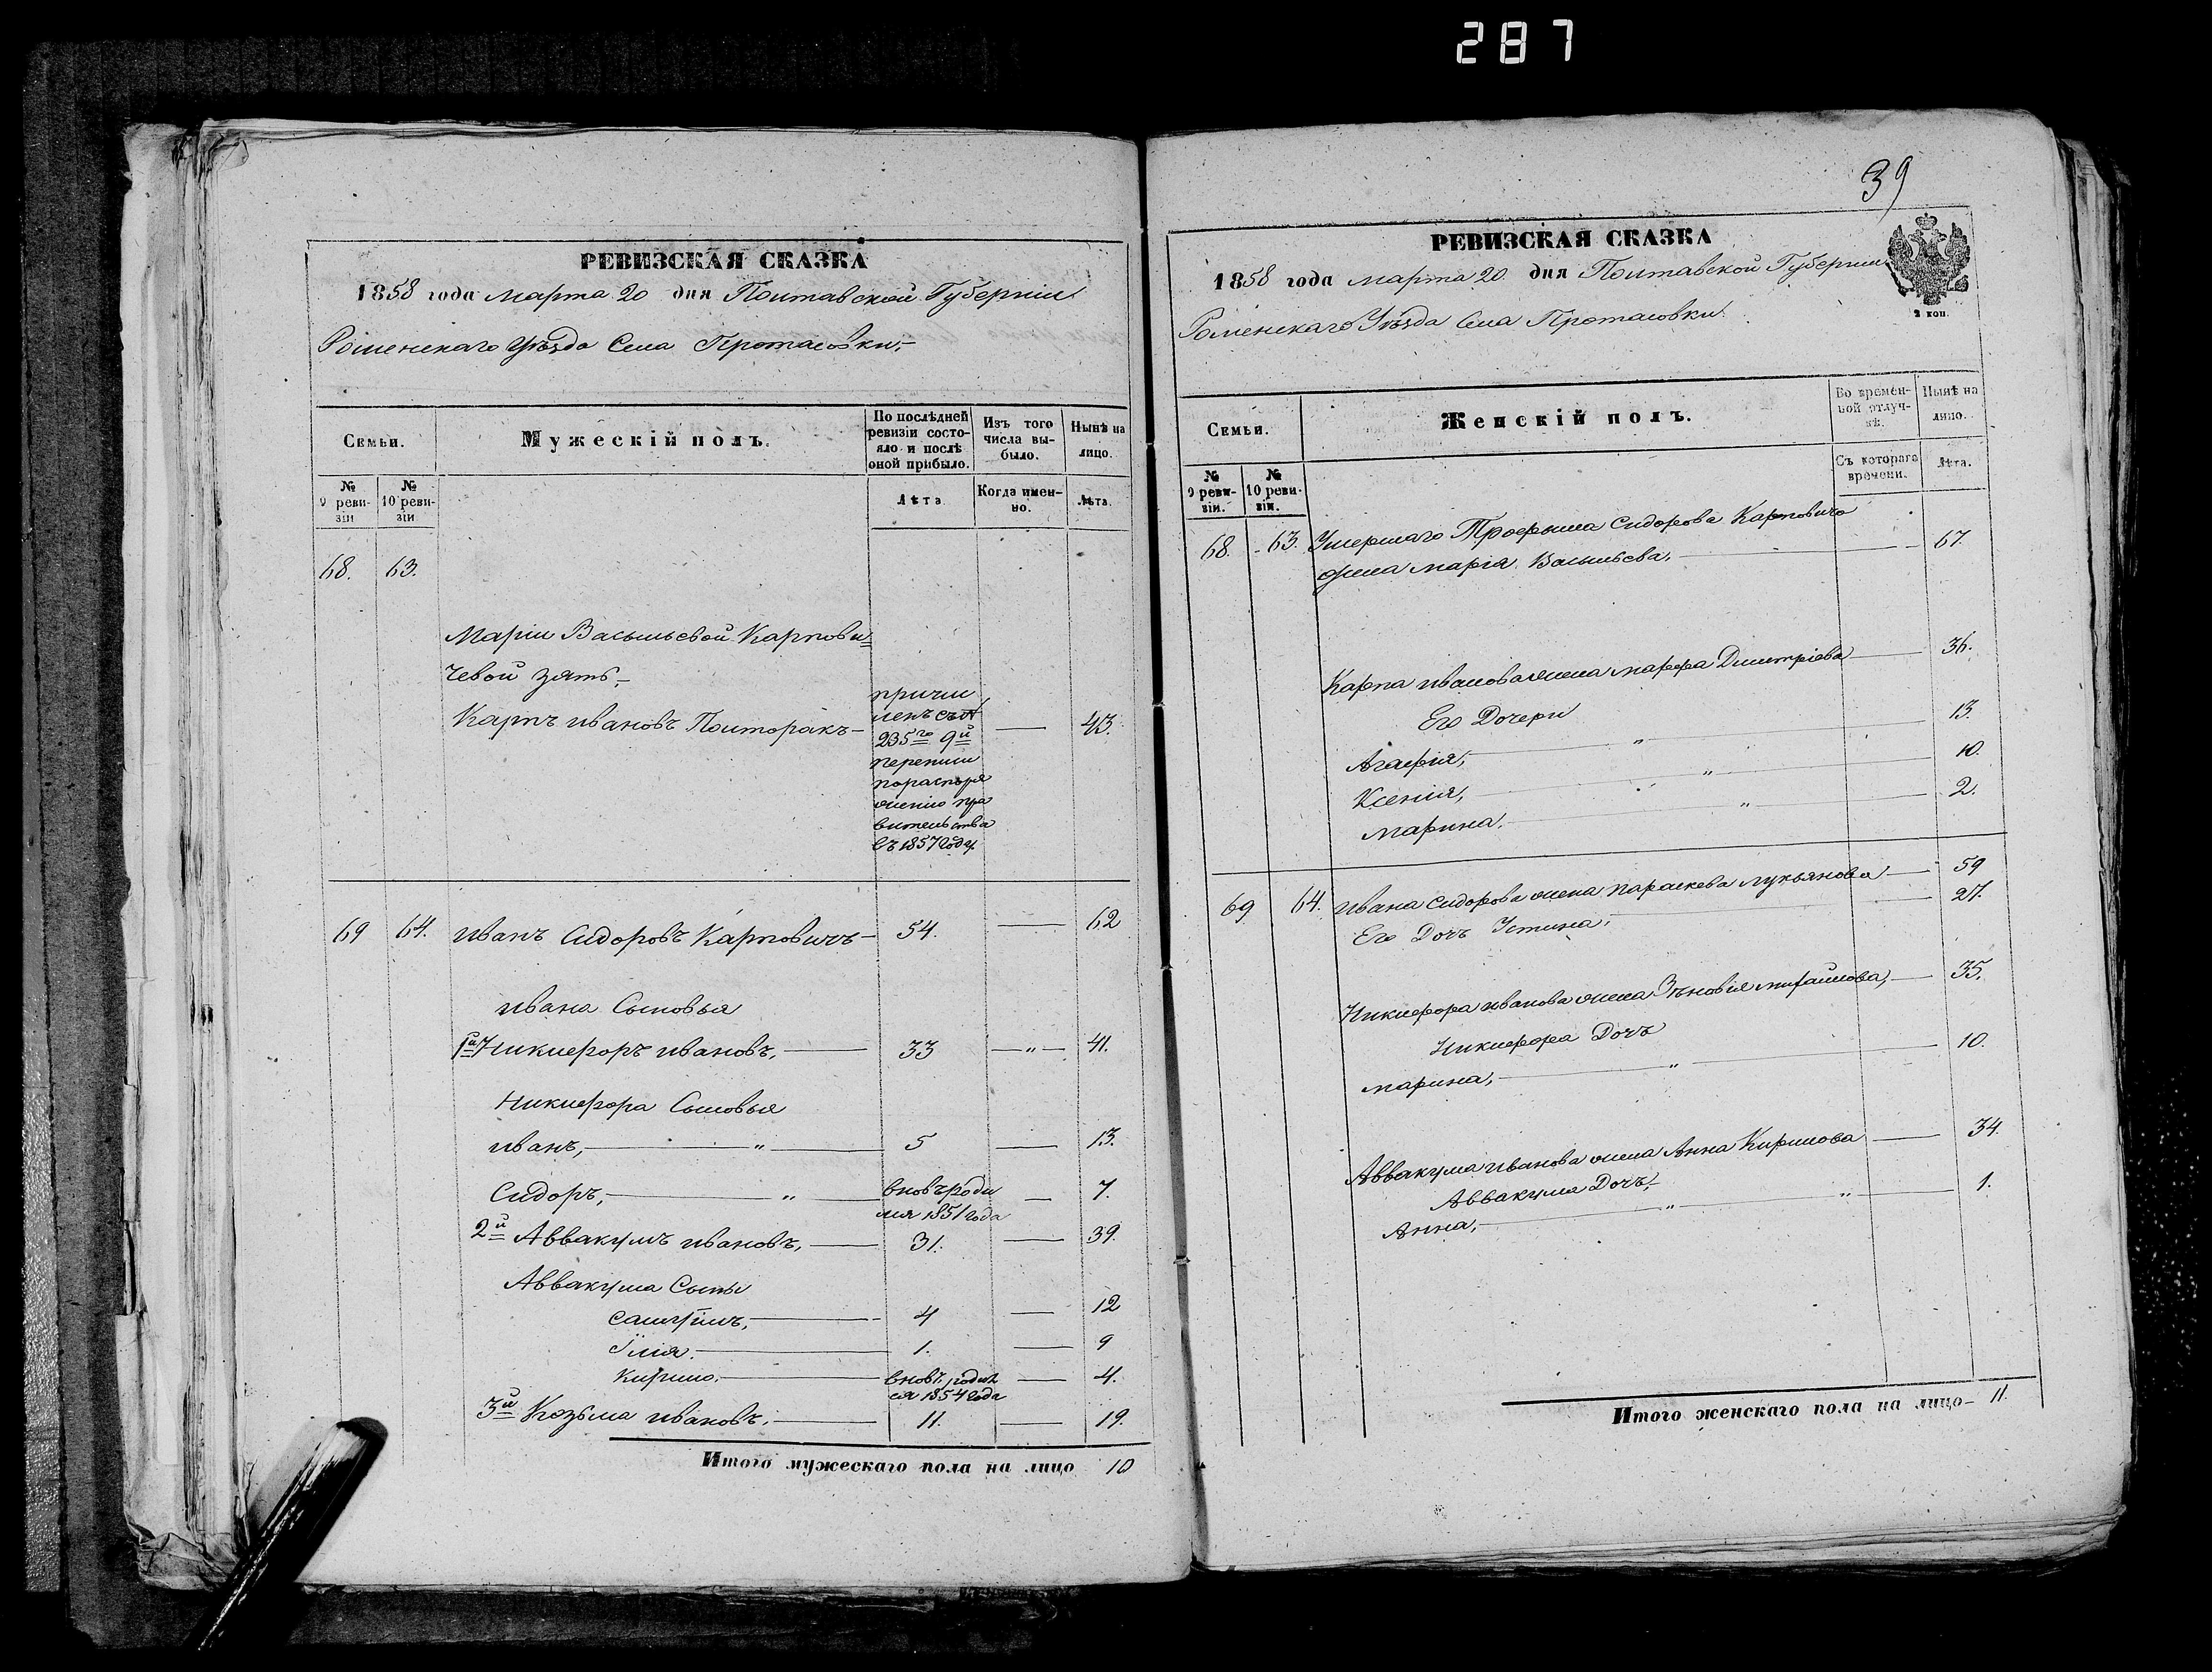 287
РЕВИЗСКАЯ СКАЗКА
1858 года марта 20 дня Полтавской Губерніи
Роменскаго Уѣзда Села Протасовки,–
Семьи.
Мужескій полъ.
По послѣдней ревизіи состояло и послѣ оной прибыло.
Изъ того числа выбыло.
Нынѣ на лицо.
№ 9 ревизіи
№ 10 ревизіи
Лѣта
Когда именно.
Лѣта
68. 63.
Маріи Васильевой Карпови=
чевой зять,–
Карпъ ивановъ Полторакъ – — 43.
причи
ленъ съ №
235го 9й
переписи
пораспоря
женію пра
вительства
въ 1857 году.
69 64. иванъ Сидоровъ Карповичъ – 54. — 62
ивана Сыновья
1й Никифоръ ивановъ, — 33 — " — 41.
Никифора Сыновья
иванъ, — " — 5 — 13.
Сидоръ, — " — вновь роди — 7.
лся 1851 года
2й Аввакумъ ивановъ, — 31. — 39.
Аввакума Сыны
самуилъ, — 4 — 12
Илія. — 1. — 9
Кирило. — вновь родил — 4.
ся 1854 года
3й Козьма ивановъ. — 11. — 19.
Итого мужескаго пола на лицо 10
39
РЕВИЗСКАЯ СКАЗКА
1858 года марта 20 дня Полтавской Губерніи
Роменскаго Уѣзда Села Протасовки
2 коп.
Семьи.
Женскій полъ.
Во временной отлучкѣ.
Нынѣ на лицо.
№ 9 ревизіи.
№ 10 ревизіи.
Съ котораго времени.
Лѣта.
68. 63. Умершаго Трофыма Сидорова Карповича
жена марія Васильева. — 67.
Карпа иванова жена марфа Дмитріева — 36.
Его Дочери
Агафія, — " — 13.
Ксенія, — " — 10.
марина. — " — 2.
69 64. ивана сидорова жена параскева лукьянова — 59
Его Дочъ Устина, — 27.
Никифора иванова жена Зѣновія михайлова, — 35.
Никифора Дочъ
марина, — " — 10.
Аввакума иванова жена Анна Кирилова — 34.
Аввакума Дочъ,–
Анна, — " — " — 1.
Итого женскаго пола на лицо – 11.